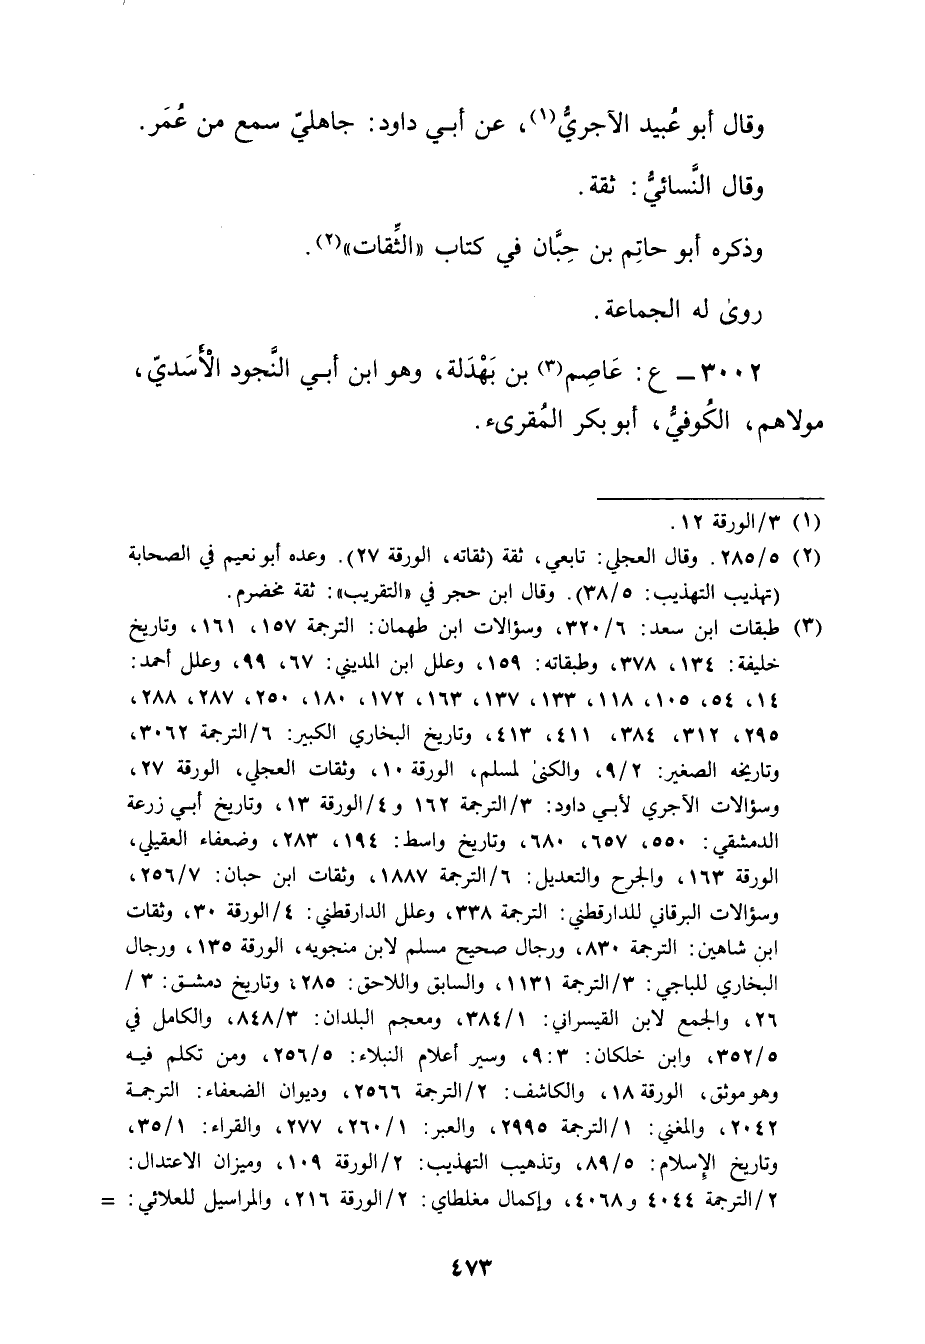 وقال أبو عُبيد الآجريُّ(١)، عن أبي داود: جاهليّ سمع من عُمَر.
وقال النَّسائيُّ: ثقة.
وذكره أبو حاتِم بن حِبَّان في كتاب «الثِّقات»(٢).
روىٰ له الجماعة.
٣٠٠٢ ـ ع: عَاصِم(٣) بن بَهْدَلة، وهو ابن أبي النَّجود الْأَسَديّ،
مولاهم، الكُوفيُّ، أبو بكر المُقرىء.
(١) ٣/الورقة ١٢.
(٢) ٢٨٥/٥. وقال العجلي: تابعي، ثقة (ثقاته، الورقة ٢٧). وعده أبو نعيم في الصحابة
(تهذيب التهذيب: ٣٨/٥). وقال ابن حجر في «التقريب»: ثقة مخضرم.
(٣) طبقات ابن سعد: ٣٢٠/٦، وسؤالات ابن طهمان: الترجمة ١٥٧، ١٦١، وتاريخ
خليفة: ١٣٤، ٣٧٨، وطبقاته: ١٥٩، وعلل ابن المديني: ٦٧، ٩٩، وعلل أحمد:
١٤، ٥٤، ١٠٥، ١١٨، ١٣٣، ١٣٧، ١٦٣، ١٧٢، ١٨٠، ٢٥٠، ٢٨٧، ٢٨٨،
٢٩٥، ٣١٢، ٣٨٤، ٤١١، ٤١٣، وتاريخ البخاري الكبير: ٦/الترجمة ٣٠٦٢،
وتاريخه الصغير: ٩/٢، والكنىٰ لمسلم، الورقة ١٠، وثقات العجلي، الورقة ٢٧،
وسؤالات الآجري لأبي داود: ٣/الترجمة ١٦٢ و٤/الورقة ١٣، وتاريخ أبي زرعة
الدمشقي: ٥٥٠، ٦٥٧، ٦٨٠، وتاريخ واسط: ١٩٤، ٢٨٣، وضعفاء العقيلي،
الورقة ١٦٣، والجرح والتعديل: ٦/الترجمة ١٨٨٧، وثقات ابن حبان: ٢٥٦/٧،
وسؤالات البرقاني للدارقطني: الترجمة ٣٣٨، وعلل الدارقطني: ٤/الورقة ٣٠، وثقات
ابن شاهين: الترجمة ٨٣٠، ورجال صحيح مسلم لابن منجويه، الورقة ١٣٥، ورجال
البخاري للباجي: ٣/الترجمة ١١٣١، والسابق واللاحق: ٢٨٥، وتاريخ دمشق: ٣ /
٢٦، والجمع لابن القيسراني: ٣٨٤/١، ومعجم البلدان: ٨٤٨/٣، والكامل في
٣٥٢/٥، وابن خلكان: ٩:٣، وسير أعلام النبلاء: ٢٥٦/٥، ومن تكلم فيه
وهو موثق، الورقة ١٨، والكاشف: ٢/الترجمة ٢٥٦٦، وديوان الضعفاء: الترجمة
٢٠٤٢، والمغني: ١/الترجمة ٢٩٩٥، والعبر: ٢٦٠/١، ٢٧٧، والقراء: ٣٥/١،
وتاريخ الإسلام: ٨٩/٥، وتذهيب التهذيب: ٢/الورقة ١٠٩، وميزان الاعتدال:
٢/الترجمة ٤٠٤٤ و٤٠٦٨، وإكمال مغلطاي: ٢/الورقة ٢١٦، والمراسيل للعلائي: =
٤٧٣